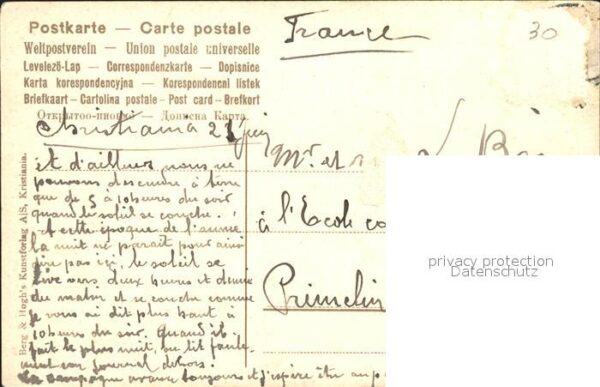 Postkarte — Carte postale
Weltpostverein — Union postale universelle
Levelező-Lap — Correspondenzkarte — Dopisnice
Karta korespondencyjna — Korespondenční lístek
Briefkaart — Cartolina postale - Post card - Brefkort
Открытое письмо — Дописна Карта
France
30
Christiania 21 juin
et d'ailleurs nous ne
pouvons descendre à terre
que de 5 à 10 heures du soir
quand le soleil se couche.
A cette époque de l'année
la nuit ne paraît pour ainsi
dire pas ici, le soleil se
lève vers deux heures et demie
du matin et se couche comme
je vous ai dit plus haut à
10 heures du soir. Quand il
fait le plus nuit, on lit
un journal dehors.
La campagne avance toujours et j'espère être au
Mr et
à l'Ecole
Primelin
Berg & Hogh's Kunstforlag A|S, Kristiania.
privacy protection
Datenschutz